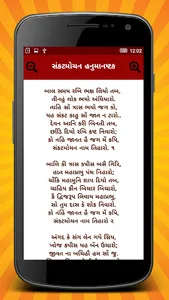 12:02
સંકટમોચન હનુમાનાષ્ટક
બાલ સમય રવિ ભક્ષ લિયો તબ,
તીનહું લોક ભયો અંધિયારો.
તાહિ સોં ત્રાસ ભયો જગ કો,
યહ સંકટ કાહુ સોં જાત ન ટારો.
દેવન આનિ કરી બિનતી તબ,
છાંડિ દિયો રવિ કષ્ટ નિવારો;
કો નહિં જાનત હૈ જગ મેં કપિ,
સંકટમોચન નામ તિહારો.
બાલિ કી ત્રાસ કપીસ બસૈ ગિરિ,
જાત મહાપ્રભુ પંથ નિહારો;
ચૌંકિ મહામુનિ શાપ દિયો તબ,
ચાહિય કૌન બિચાર બિચારો.
કૈ દ્વિજ રૂપ લિવાય મહાપ્રભુ,
સો તુમ દાસ કે શોક નિવારો;
કો નહિં જાનત હૈ જગ મેં કપિ,
સંકટમોચન નામ તિહારો.
અંગદ કે સંગ લેન ગયે સિય,
ખોજ કપીસ યહ બૈન ઉચારો;
જીવત ના બચિહૌ હમ સોં જુ,